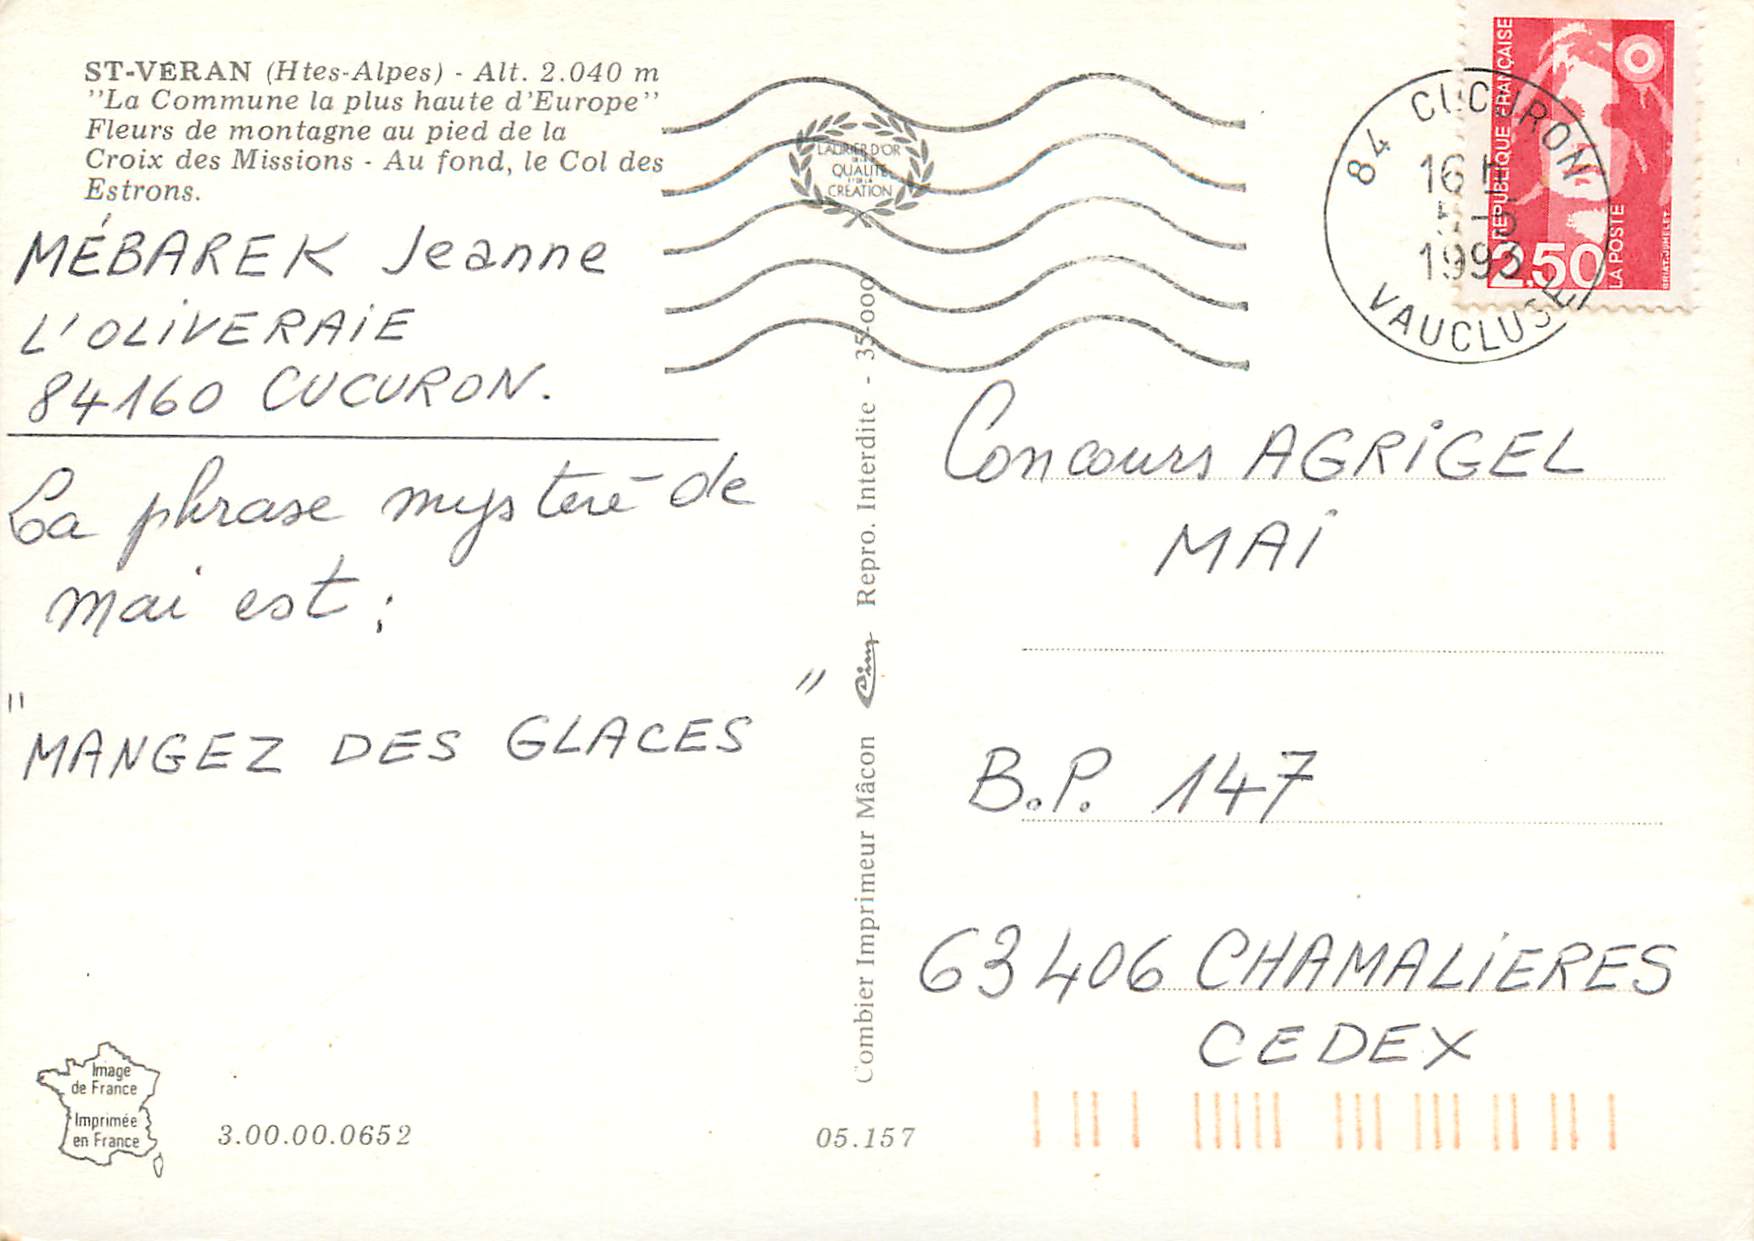 ST-VERAN (Htes-Alpes) - Alt. 2.040 m
"La Commune la plus haute d'Europe"
Fleurs de montagne au pied de la
Croix des Missions - Au fond, le Col des
Estrons.
MÉBAREK Jeanne
L'OLiVERAiE
84160 CUCURON.
La phrase mystère de
mai est :
"MANGEZ DES GLACES"
Image
de France
Imprimée
en France
3.00.00.0652
05.157
LAURIER D'OR
DE LA
QUALITE
ET DE LA
CREATION
Combier Imprimeur Mâcon Cim Repro. Interdite - 35-000
84 CUCURON
16 H
5-5
1993
VAUCLUSE
REPUBLIQUE FRANÇAISE
2,50
LA POSTE
BRIAT-JUMELET
Concours AGRiGEL
MAi
B.P. 147
63406 CHAMALiERES
CEDEX